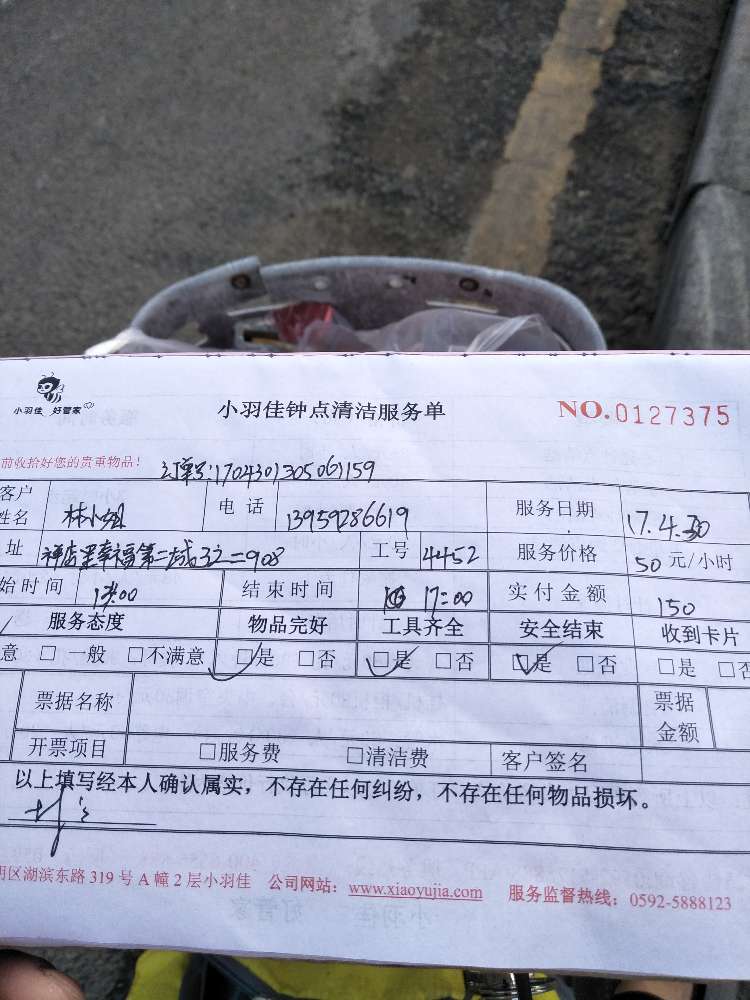 小羽佳 好管家
小羽佳钟点清洁服务单
NO.0127375
前收拾好您的贵重物品!
订单号:1704301305061159
客户姓名 林小姐 电话 13959286619 服务日期 17.4.30
址 祥店里幸福第二城 908 工号 4452 服务价格 50元/小时
始时间 结束时间 17:00 实付金额 150
服务态度 物品完好 工具齐全 安全结束 收到卡片
意 □一般 □不满意 □是 □否 □是 □否 □是 □否 □是 □否
票据名称 票据金额
开票项目 □服务费 □清洁费 客户签名
以上填写经本人确认属实,不存在任何纠纷,不存在任何物品损坏。
明区湖滨东路319号A幢2层小羽佳 公司网站:www.xiaoyujia.com 服务监督热线:0592-5888123